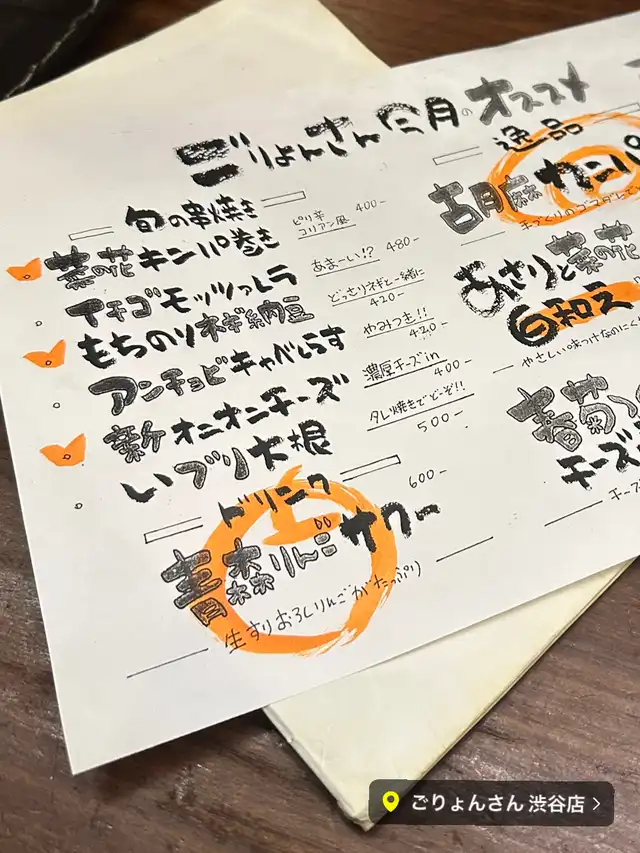 ごりょんさん 月のオススメ
旬の串焼き
菜の花キンパ巻き
ピリ辛
コリアン風 400-
イチゴモッツァレラ
あまーい!? 480-
もちのりネギ納豆
どっさりネギと一緒に
420-
アンチョビキャベしらす
やみつき!!
420-
新オニオンチーズ
濃厚チーズin
400-
いぶり大根
タレ焼きでどーぞ!!
500-
ドリンク
青森りんごサワー
600-
生すりおろしりんごがたっぷり
逸品
胡麻カンパ
あさりと菜の花
白和え
やさしい味つけなのに
春菊
チーズ
チーズ
ごりょんさん 渋谷店